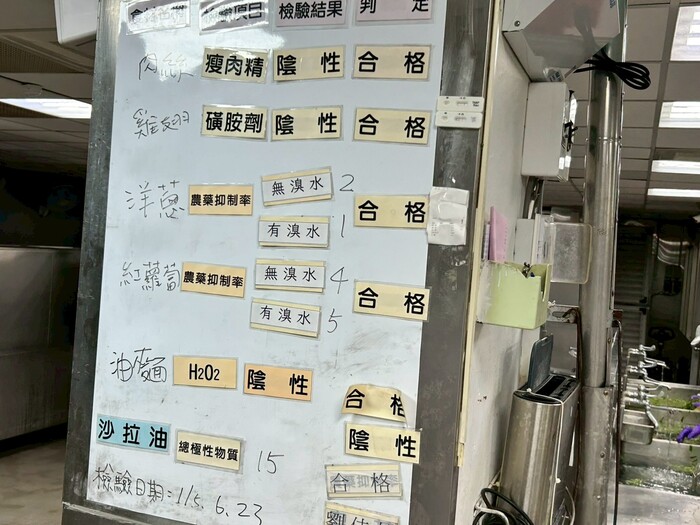 檢驗項目 檢驗結果 判 定
肉絲 瘦肉精 陰性 合格
雞翅 磺胺劑 陰性 合格
洋蔥 農藥抑制率 無溴水 2 合格
有溴水 1
紅蘿蔔 農藥抑制率 無溴水 4 合格
有溴水 5
油麵 H2O2 陰性 合格
沙拉油 總極性物質 15 陰性
合格
檢驗日期:115.6.23